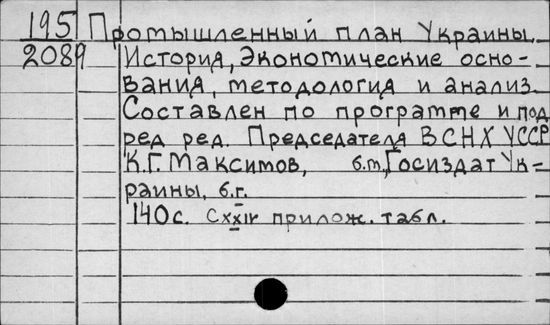 195 Промышленный план Украины.
2089 История, Экономические осно-
вания, методология и анализ.
Составлен по программе и под
ред ред. Председателя ВСНХ УССР
К.Г. Максимов, б.m., Госиздат Ук-
раины, б.г.
140с. Cxxiv прилож. табл.